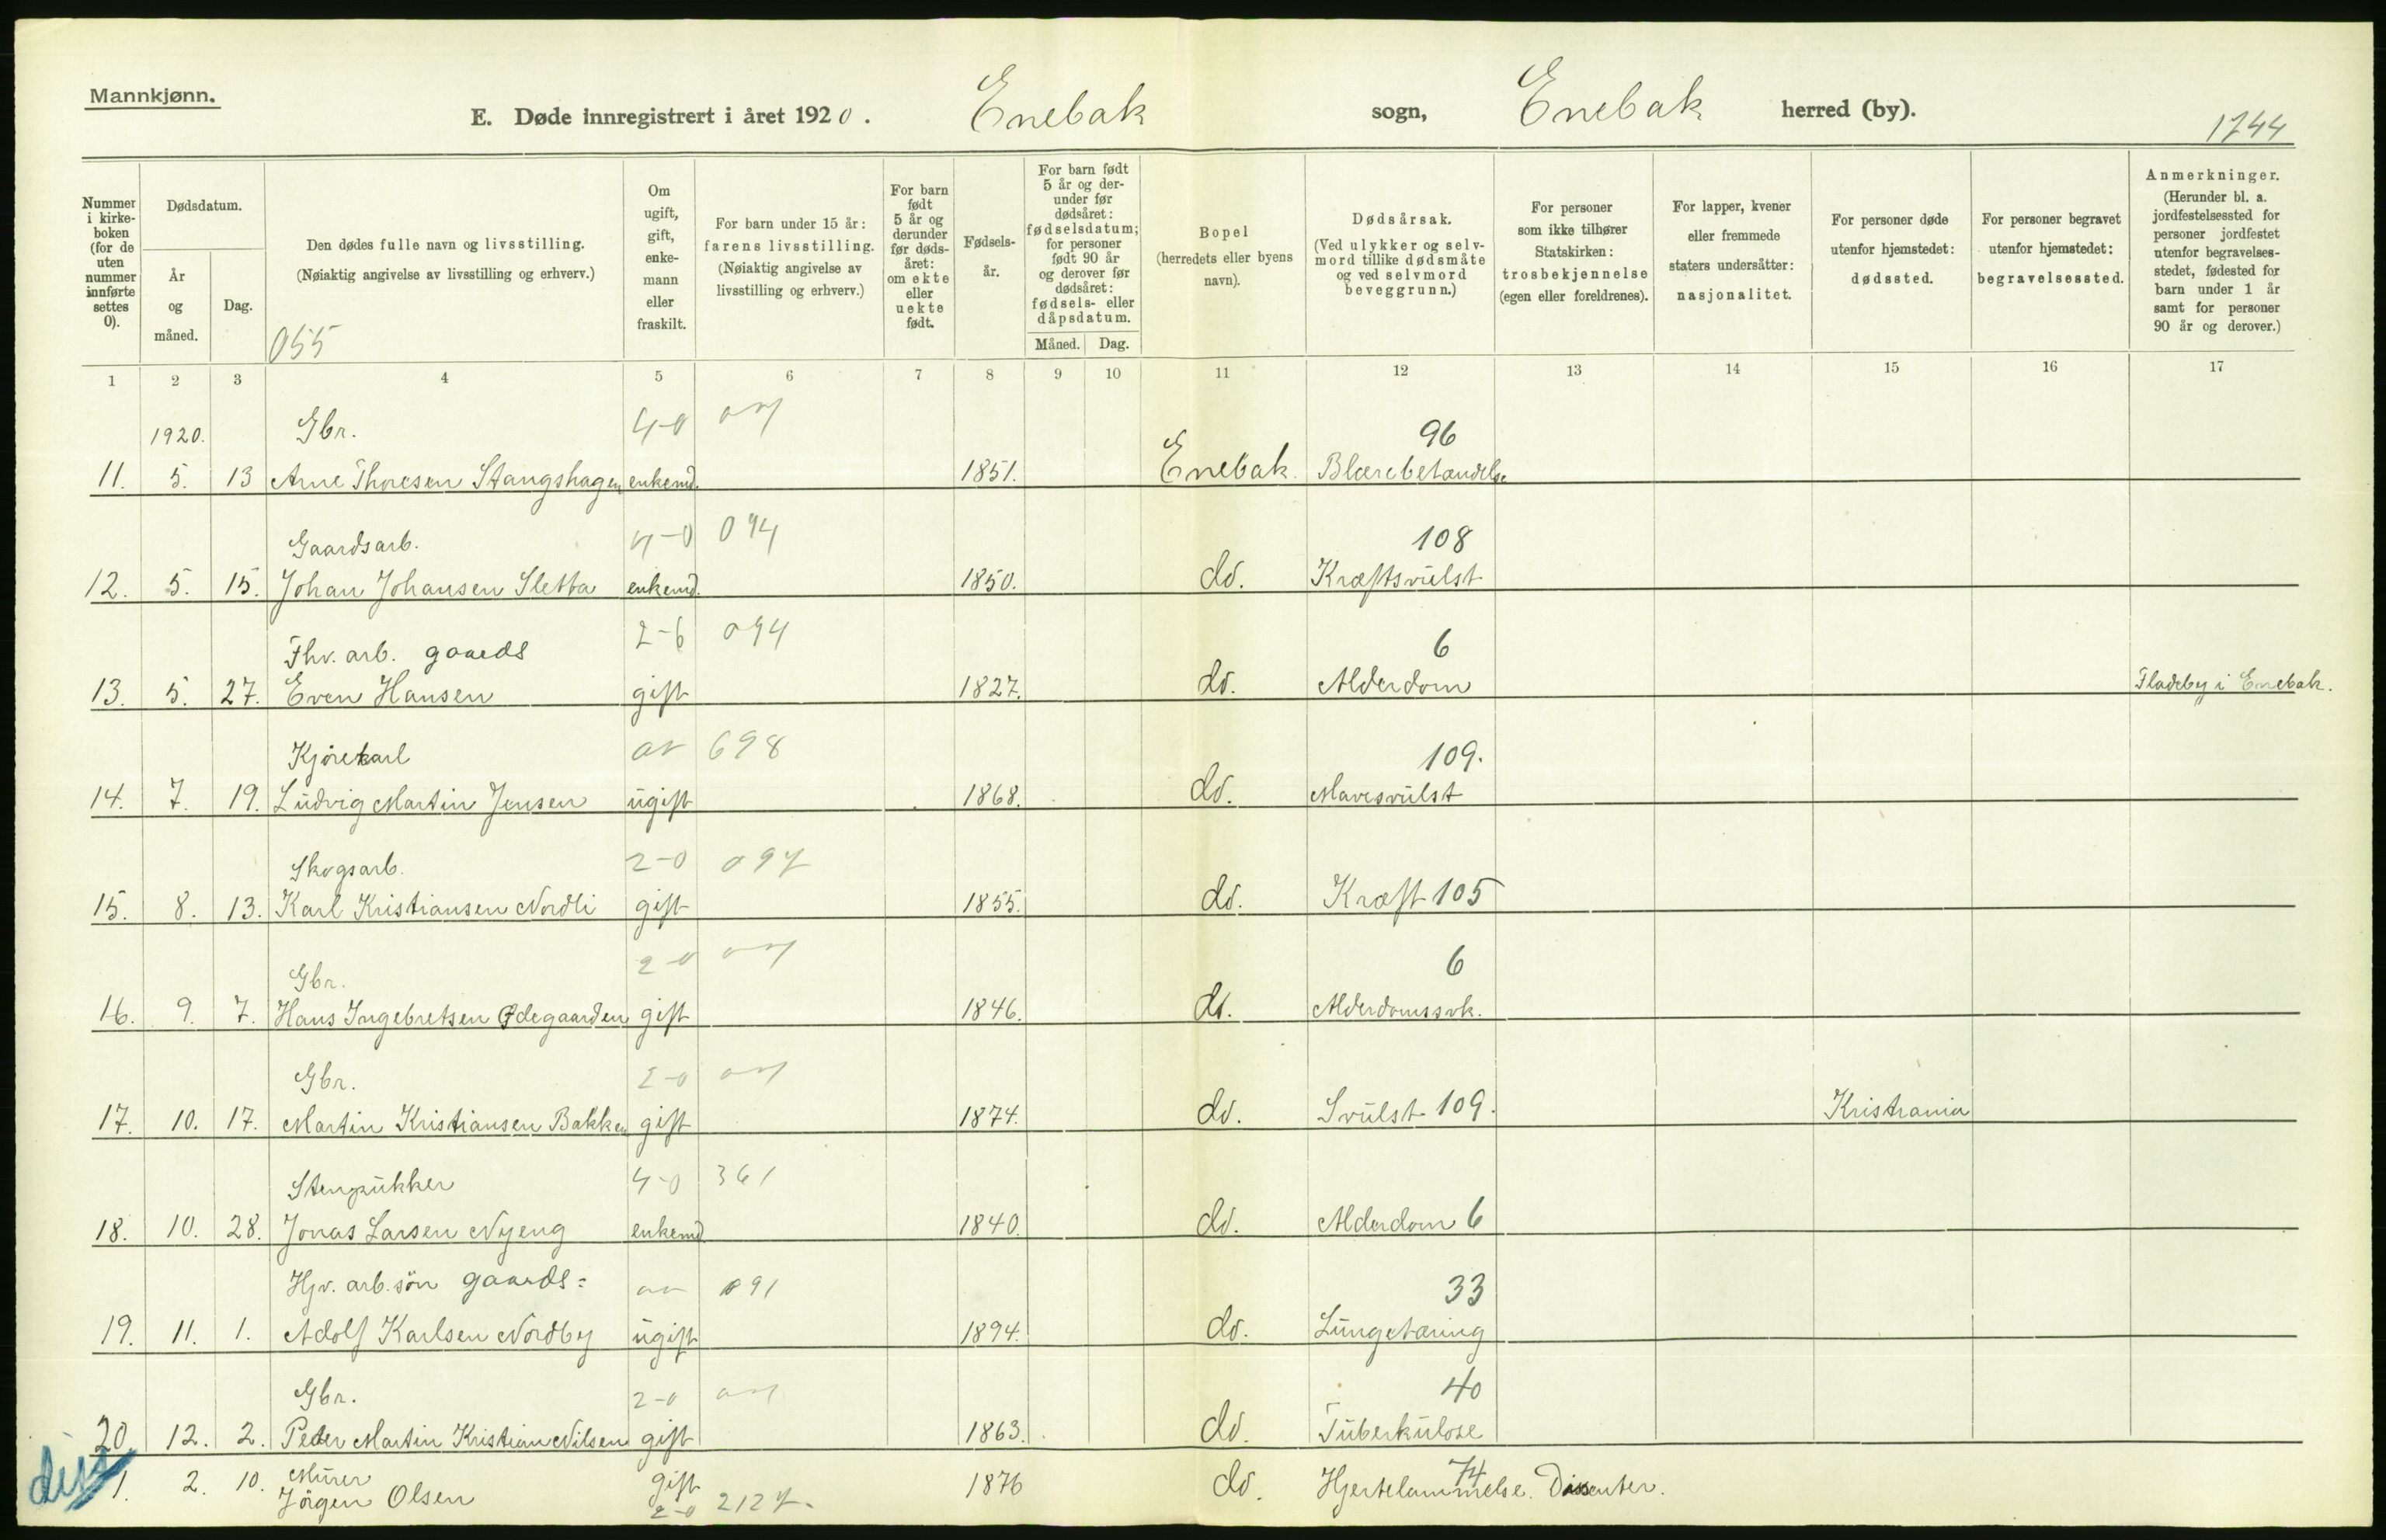 Mannkjønn.
E. Døde innregistrert i året 1920. Enebak sogn, Enebak herred (by).
1744
Nummer i kirke-boken (for de uten nummer innførte settes 0).
Dødsdatum.
År og måned.
Dag.
Den dødes fulle navn og livsstilling.
(Nøiaktig angivelse av livsstilling og erhverv.)
055
Om ugift, gift, enke-mann eller fraskilt.
For barn under 15 år: farens livsstilling.
(Nøiaktig angivelse av livsstilling og erhverv.)
For barn født 5 år og derunder før døds-året: om ekte eller uekte født.
Fødsels-år.
For barn født 5 år og der-under før dødsåret: fødselsdatum; for personer født 90 år og derover før dødsåret: fødsels- eller dåpsdatum.
Måned. Dag.
Bopel (herredets eller byens navn).
Dødsårsak.
(Ved ulykker og selv-mord tillike dødsmåte og ved selvmord beveggrunn.)
For personer som ikke tilhører Statskirken: trosbekjennelse (egen eller foreldrenes).
For lapper, kvener eller fremmede staters undersåtter: nasjonalitet.
For personer døde utenfor hjemstedet: dødssted.
For personer begravet utenfor hjemstedet: begravelsessted.
Anmerkninger.
(Herunder bl. a. jordfestelsessted for personer jordfestet utenfor begravelses-stedet, fødested for barn under 1 år samt for personer 90 år og derover.)
1 2 3 4 5 6 7 8 9 10 11 12 13 14 15 16 17
1920. Gbr. 4-0 96
11. 5. 13 Arne Thoresen Stangshagen enkemd. 1851. Enebak. Blærebetændelse
Gaardsarb. 4-0 094 108
12. 5. 15. Johan Johansen Sletta enkemd. 1850. do. Kræftsvulst
Fhv. arb. gaards 2-6 094 6
13. 5. 27. Even Hansen gift 1827. do. Alderdom Fladeby i Enebak.
Kjørekarl 698 109.
14. 7. 19. Ludvig Martin Jensen ugift 1868. do. Mavesvulst
Skogsarb. 2-0 097
15. 8. 13. Karl Kristiansen Nordli gift 1855. do. Kræft 105
Gbr. 2-0 6
16. 9. 7. Hans Ingebretsen Ødegaarden gift 1846. do. Alderdomssvk.
Gbr. 2-0
17. 10. 17. Martin Kristiansen Bakken gift 1874. do. Svulst 109. Kristiania
Stenpukker 4-0 361
18. 10. 28. Jonas Larsen Nyeng enkemd 1840. do. Alderdom 6
Hjv. arb. søn gaards= 091 33
19. 11. 1. Adolf Karlsen Nordby ugift 1894. do. Lungetæring
Gbr. 2-0 40
20 12. 2. Peder Martin Kristian Nilsen gift 1863. do. Tuberkulose
diss
Murer gift 74
1. 2. 10. Jörgen Olsen 2-0 2127. 1876 do. Hjertelammelse. Dissenter.